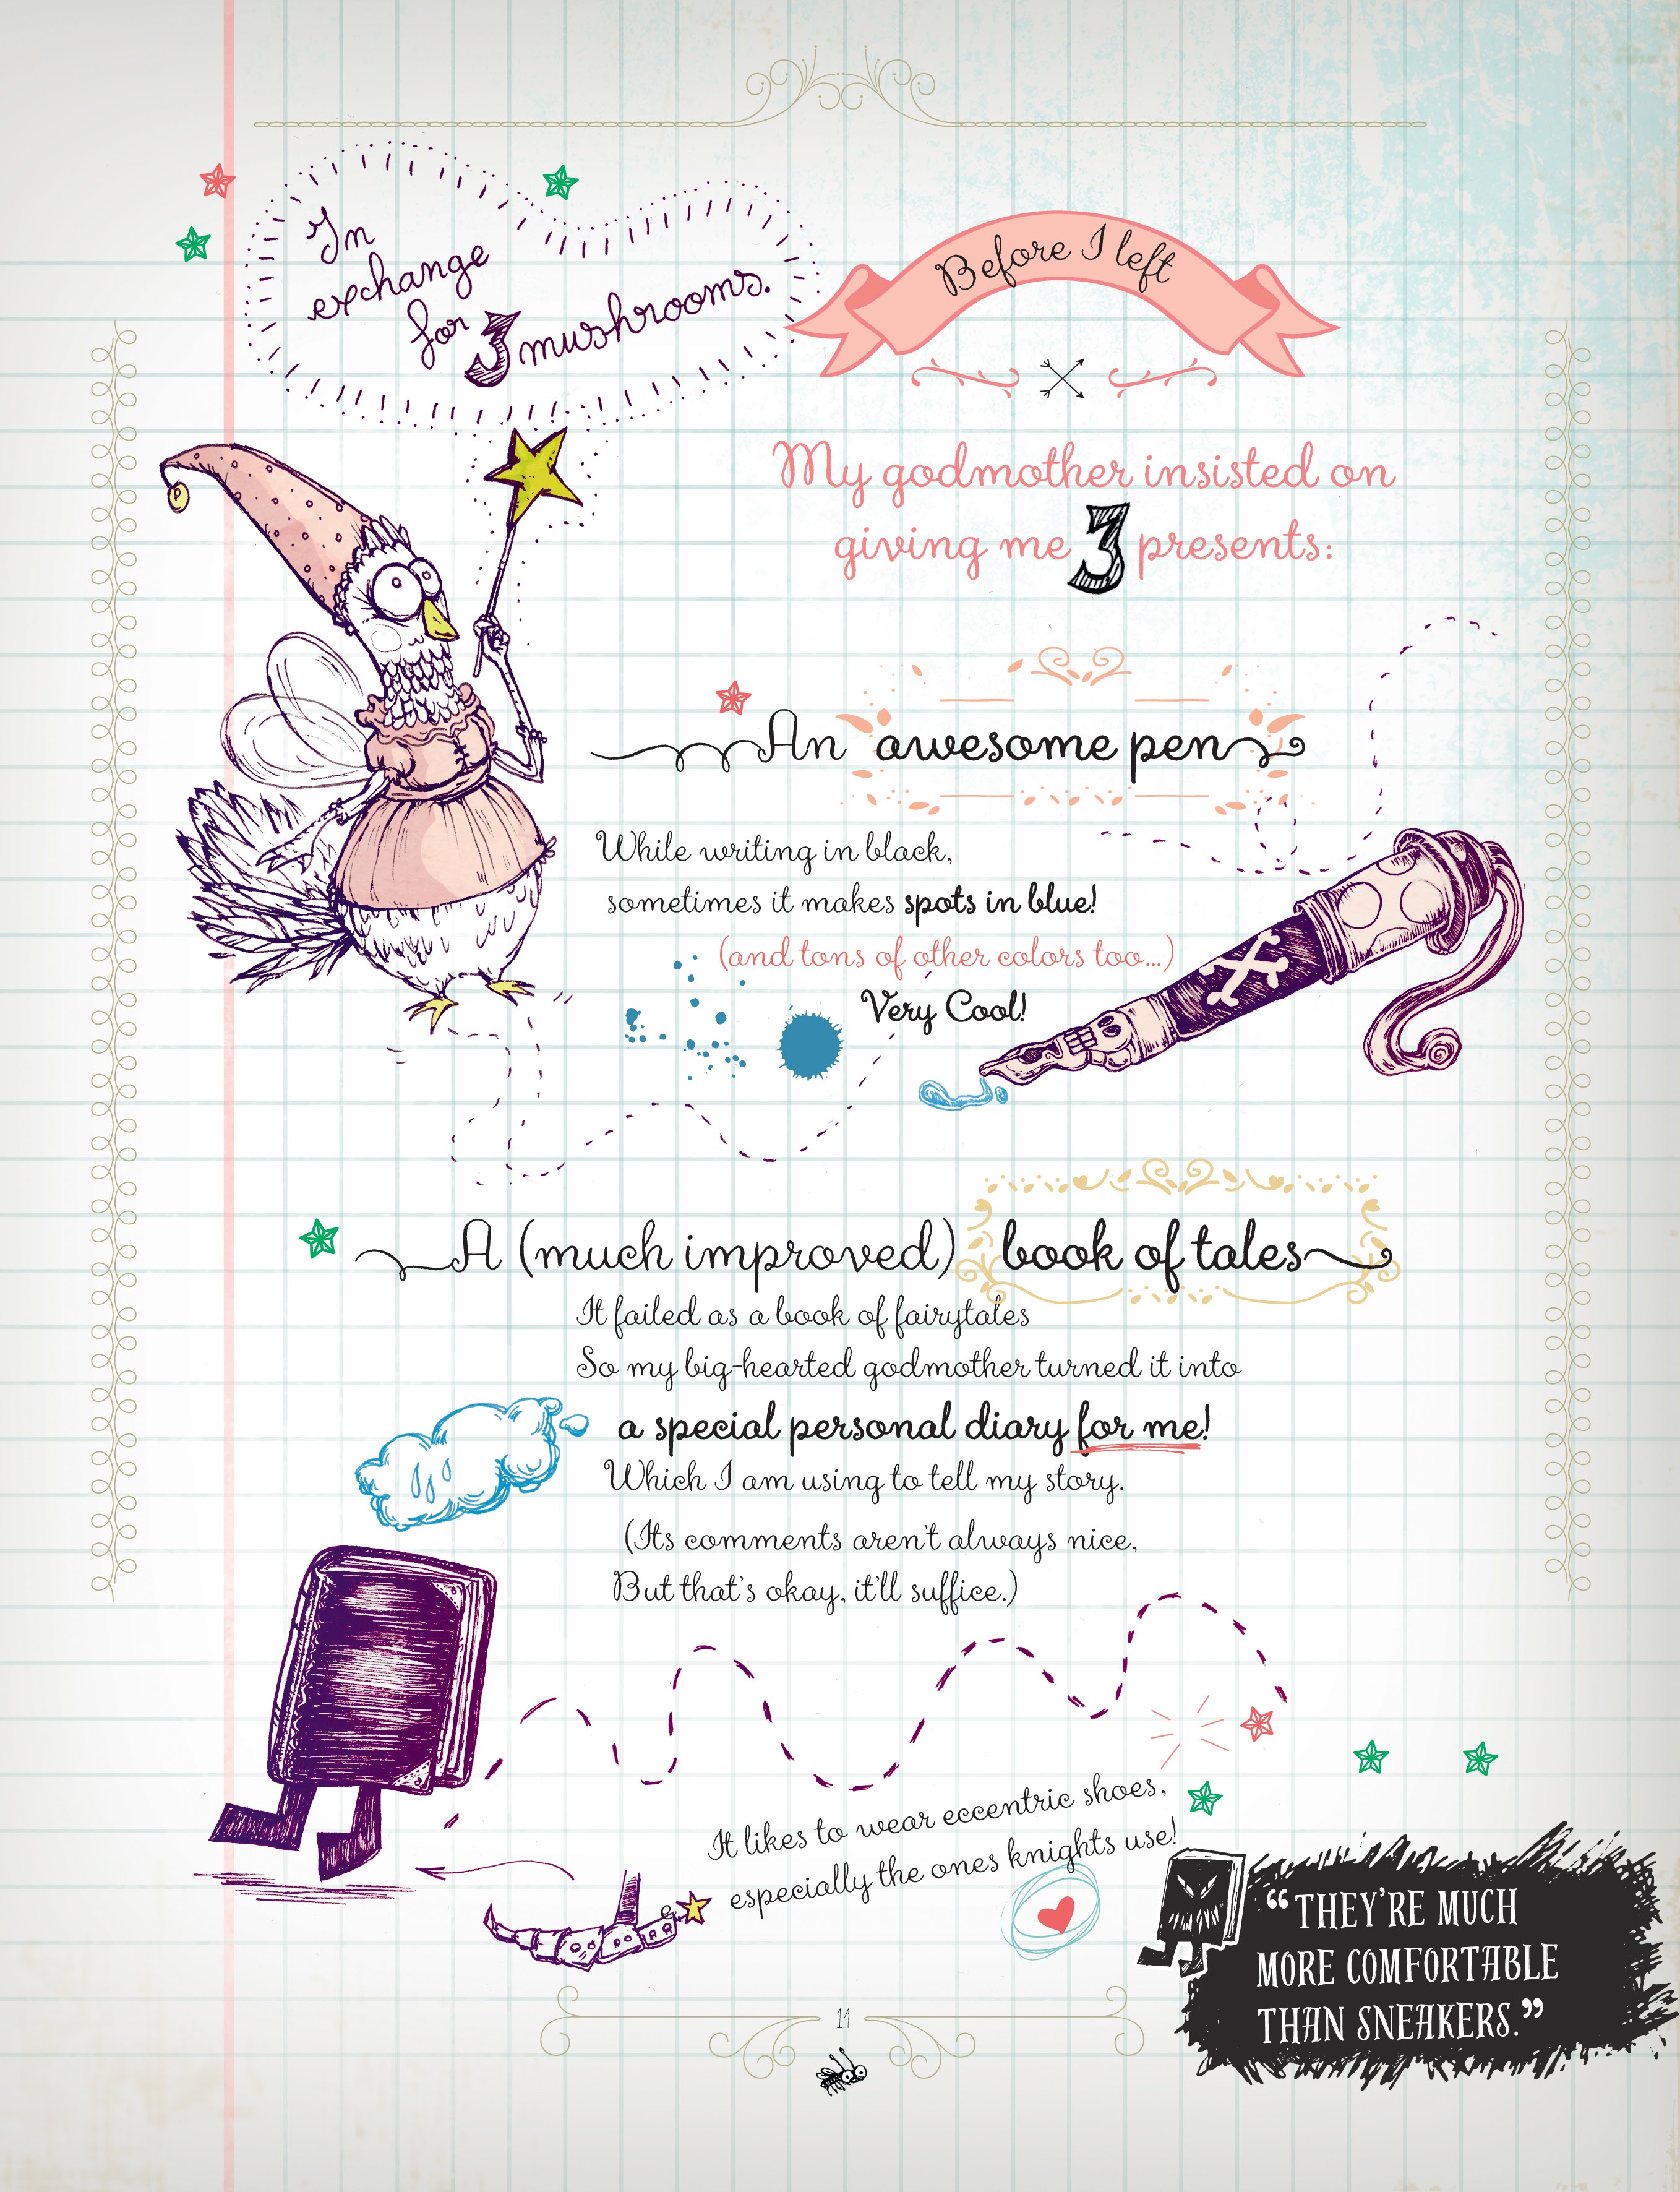 In
exchange
for 3 mushrooms.
Before I left
My godmother insisted on
giving me 3 presents:
An awesome pen
While writing in black,
sometimes it makes spots in blue!
(and tons of other colors too...)
Very Cool!
A (much improved) book of tales
It failed as a book of fairytales
So my big-hearted godmother turned it into
a special personal diary for me!
Which I am using to tell my story.
(Its comments aren't always nice,
But that's okay, it'll suffice.)
It likes to wear eccentric shoes,
especially the ones knights use!
“THEY'RE MUCH
MORE COMFORTABLE
THAN SNEAKERS.”
14